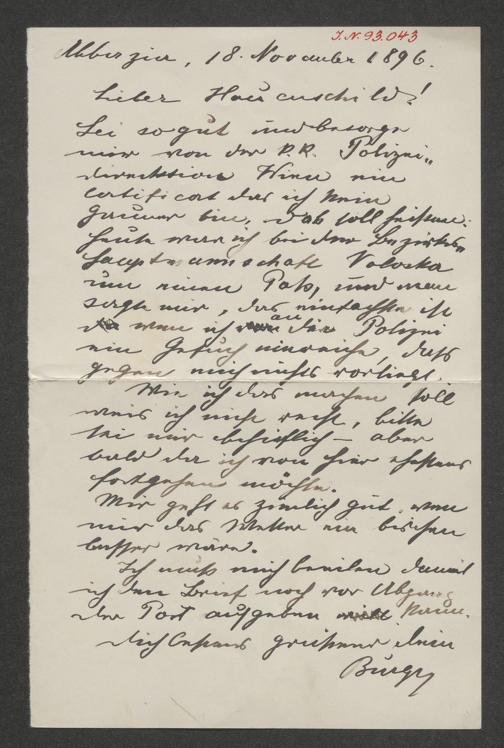 J.N. 93.043
Abbazia, 18. November 1896.
Lieber Hauenschild!
Sei so gut und besorge
mir von der k.k. Polizei„
direktion Wien ein
certificat das ich kein
Gauner bin, das soll heißen:
heute war ich bei der Bezirks„
hauptmannschaft Voloska
um einen Paß, und man
sagte mir, das einfachste ist
wenn ich an die Polizei
ein Gesuch einreiche, daß
gegen mich nichts vorliegt.
Wie ich das machen soll
weis ich nicht recht, bitte
sei mir behilflich – aber
bald da ich von hier ehestens
fortgehen möchte.
Mir geht es ziemlich gut, wenn
mir das Wetter ein bischen
besser wäre.
Ich muß mich beeilen damit
ich den Brief noch vor Abgang
der Post aufgeben kann.
Dich bestens grüßend Dein
Burger